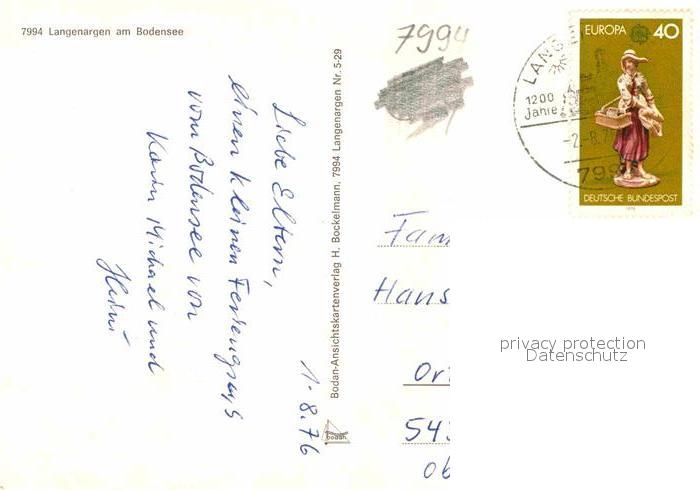 7994 Langenargen am Bodensee
Liebe Eltern,
einen kleinen Feriengruß
vom Bodensee von
Karin Michael und
1.8.76
Bodan-Ansichtskartenverlag H. Bockelmann, 7994 Langenargen Nr. 5-29
bodan
7994
LANG
1200
Jahre
-2.-8.7
799
EUROPA 40
DEUTSCHE BUNDESPOST
Fam
Hans
Or
543
ob
privacy protection
Datenschutz